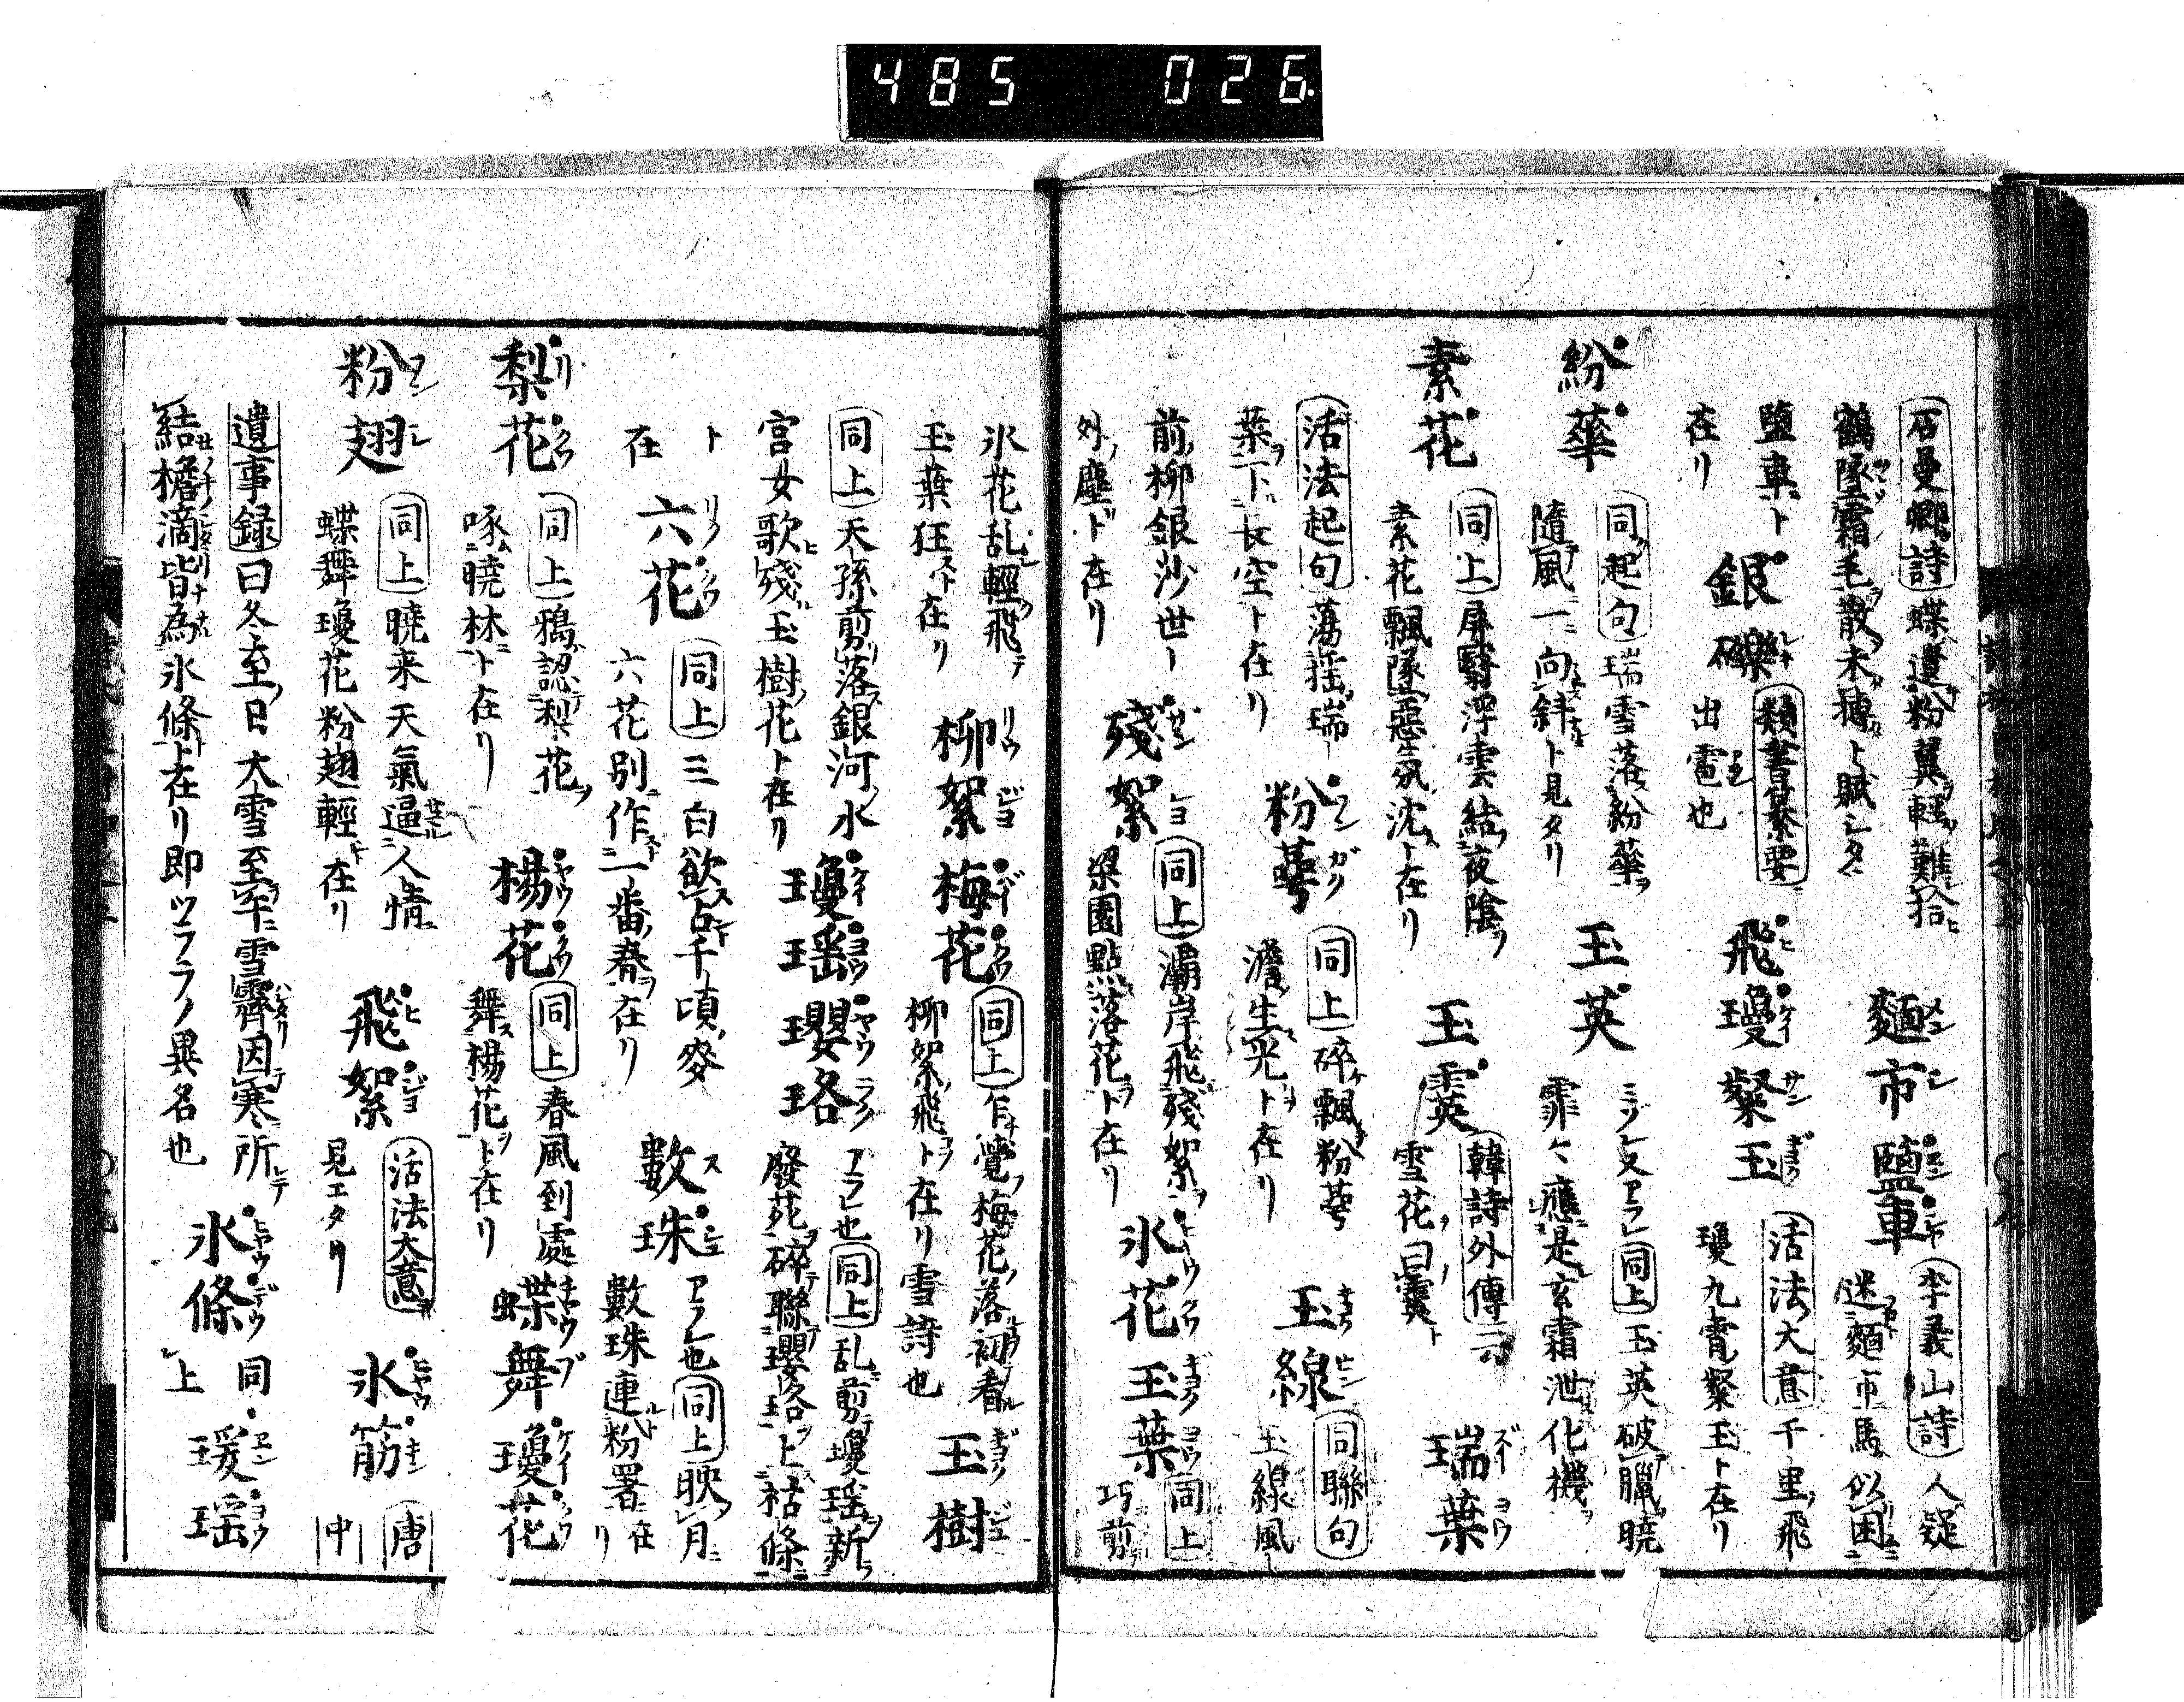 485 026
石曼卿詩 蝶遺粉翼輕難拾
鶴墜霜毛散未轉ト賦シタ
麵市 鹽車
李義山詩 人疑
迷麵市馬似困
鹽車ト在リ
銀礫
類書纂要ニ
出雹也
飛瓊 粲玉
活法大意 千里飛
瓊九霄粲玉ト在リ
紛華
同起句 瑞雪落紛華
隨風一向斜ト見タリ
玉英
ミソレ又アラレ 同上 玉英破臘曉
霏々應是玄霜泄化機
素花
同上 屏翳浮雲結夜陰
素花飄墜惡氛沈ト在リ
玉霙
韓詩外傳云
雪花曰霙ト
瑞葉
活法起句 蕩搖瑞
葉下長空ト在リ
粉萼
同上 碎飄粉萼
澹生光ト在リ
玉線
同聯句
玉線風
前柳銀沙世
外塵ト在リ
殘絮
同上 灞岸飛殘絮
梁園點落花ト在リ
氷花 玉葉
同上
巧剪
氷花乱輕飛テ
玉葉狂スト在リ
柳絮 梅花
同上 乍覺梅花落初看
柳絮飛ト在リ雪詩也
玉樹
同上 天孫剪落銀河水
宮女歌殘玉樹花ト在リ
瓊瑶 瓔珞
アラレ也 同上 乱剪瓊瑶新
廢苑碎聯瓔珞上枯條
ト在
六花
同上 三白欲占千頃麥
六花別作一番春在リ
數珠
アラレ也 同上 映月
數珠連粉署在リ
梨花
同上 鴉認梨花
啄曉林ト在リ
楊花
同上 春風到處
舞楊花ト在リ
蝶舞 瓊花
粉翅
同上 曉来天氣逼人情
蝶舞瓊花粉翅輕ト在リ
飛絮
活法大意ニ
見エタリ
氷筋
唐中
遺事録 曰冬至日大雪至午雪霽因寒所
結檐滴皆為氷條ト在リ即ツララノ異名也
氷條
同上
瑗瑶